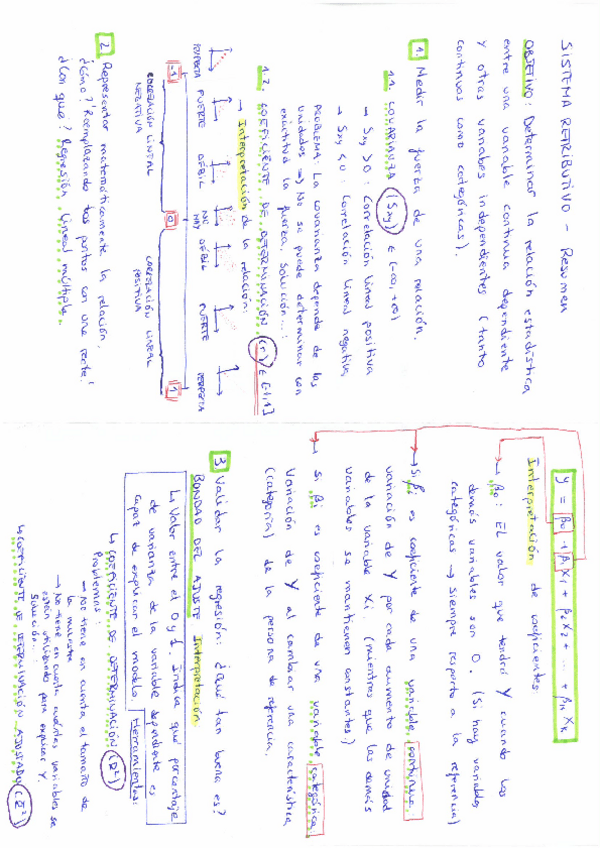 SISTEMA RETRIBUTIVO - Resumen
OBJETIVO: Determinar la relación estadística
entre una variable continua dependiente
y otras variables independientes (tanto
continuas como categóricas).
1. Medir la fuerza de una relación.
1.1. COVARIANZA (Sxy) ∈ (-∞, +∞)
→ Sxy > 0 : Correlación lineal positiva
→ Sxy < 0 : Correlación lineal negativa
PROBLEMA: La covarianza depende de las
unidades → No se puede determinar con
exactitud la fuerza. Solución...:
1.2. COEFICIENTE DE DETERMINACIÓN (r) ∈ [-1,1]
→ Interpretación de la relación:
PERFECTA FUERTE DÉBIL NO HAY DÉBIL FUERTE PERFECTA
-1 0 1
CORRELACIÓN LINEAL
NEGATIVA
CORRELACIÓN LINEAL
POSITIVA
2. Representar matemáticamente la relación.
¿Cómo? Reemplazando los puntos con una recta!
¿Con qué? Regresión lineal múltiple.
Y = β0 + β1X1 + β2X2 + ... + βkXk
Interpretación de coeficientes:
→ β0: El valor que tendrá Y cuando las
demás variables son 0. (Si hay variables
categóricas → siempre respecto a la referencia)
→ Si βi es coeficiente de una variable continua:
variación de Y por cada aumento de unidad
de la variable Xi. (mientras que las demás
variables se mantienen constantes)
→ Si βi es coeficiente de una variable categórica:
Variación de Y al cambiar una característica
(categoría) de la persona de referencia.
3. Validar la regresión: ¿Qué tan buena es?
BONDAD DEL AJUSTE Interpretación:
↳ Valor entre el 0 y 1. Indica qué porcentaje
de varianza de la variable dependiente es
capaz de explicar el modelo. Herramientas:
↳ COEFICIENTE DE DETERMINACIÓN (R²)
Problemas:
→ No tiene en cuenta el tamaño de
la muestra
→ No tiene en cuenta cuántas variables se
están utilizando para explicar Y.
Solución...:
↳ COEFICIENTE DE DETERMINACIÓN AJUSTADO (R̄²)